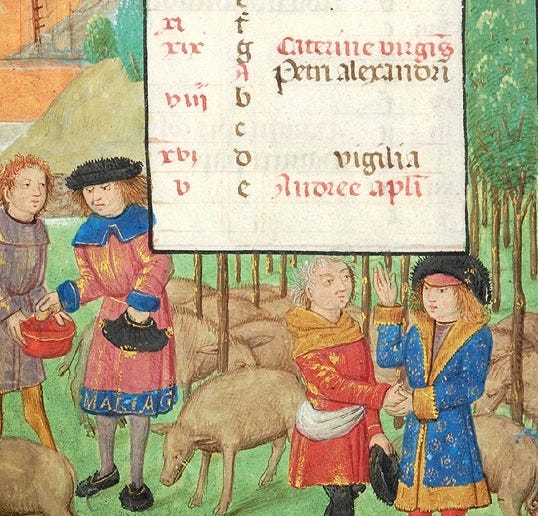 e
xi f
xix g Caterine virgis
A Petri alexandri
viij b
c
xvi d vigilia
v e Andree apli